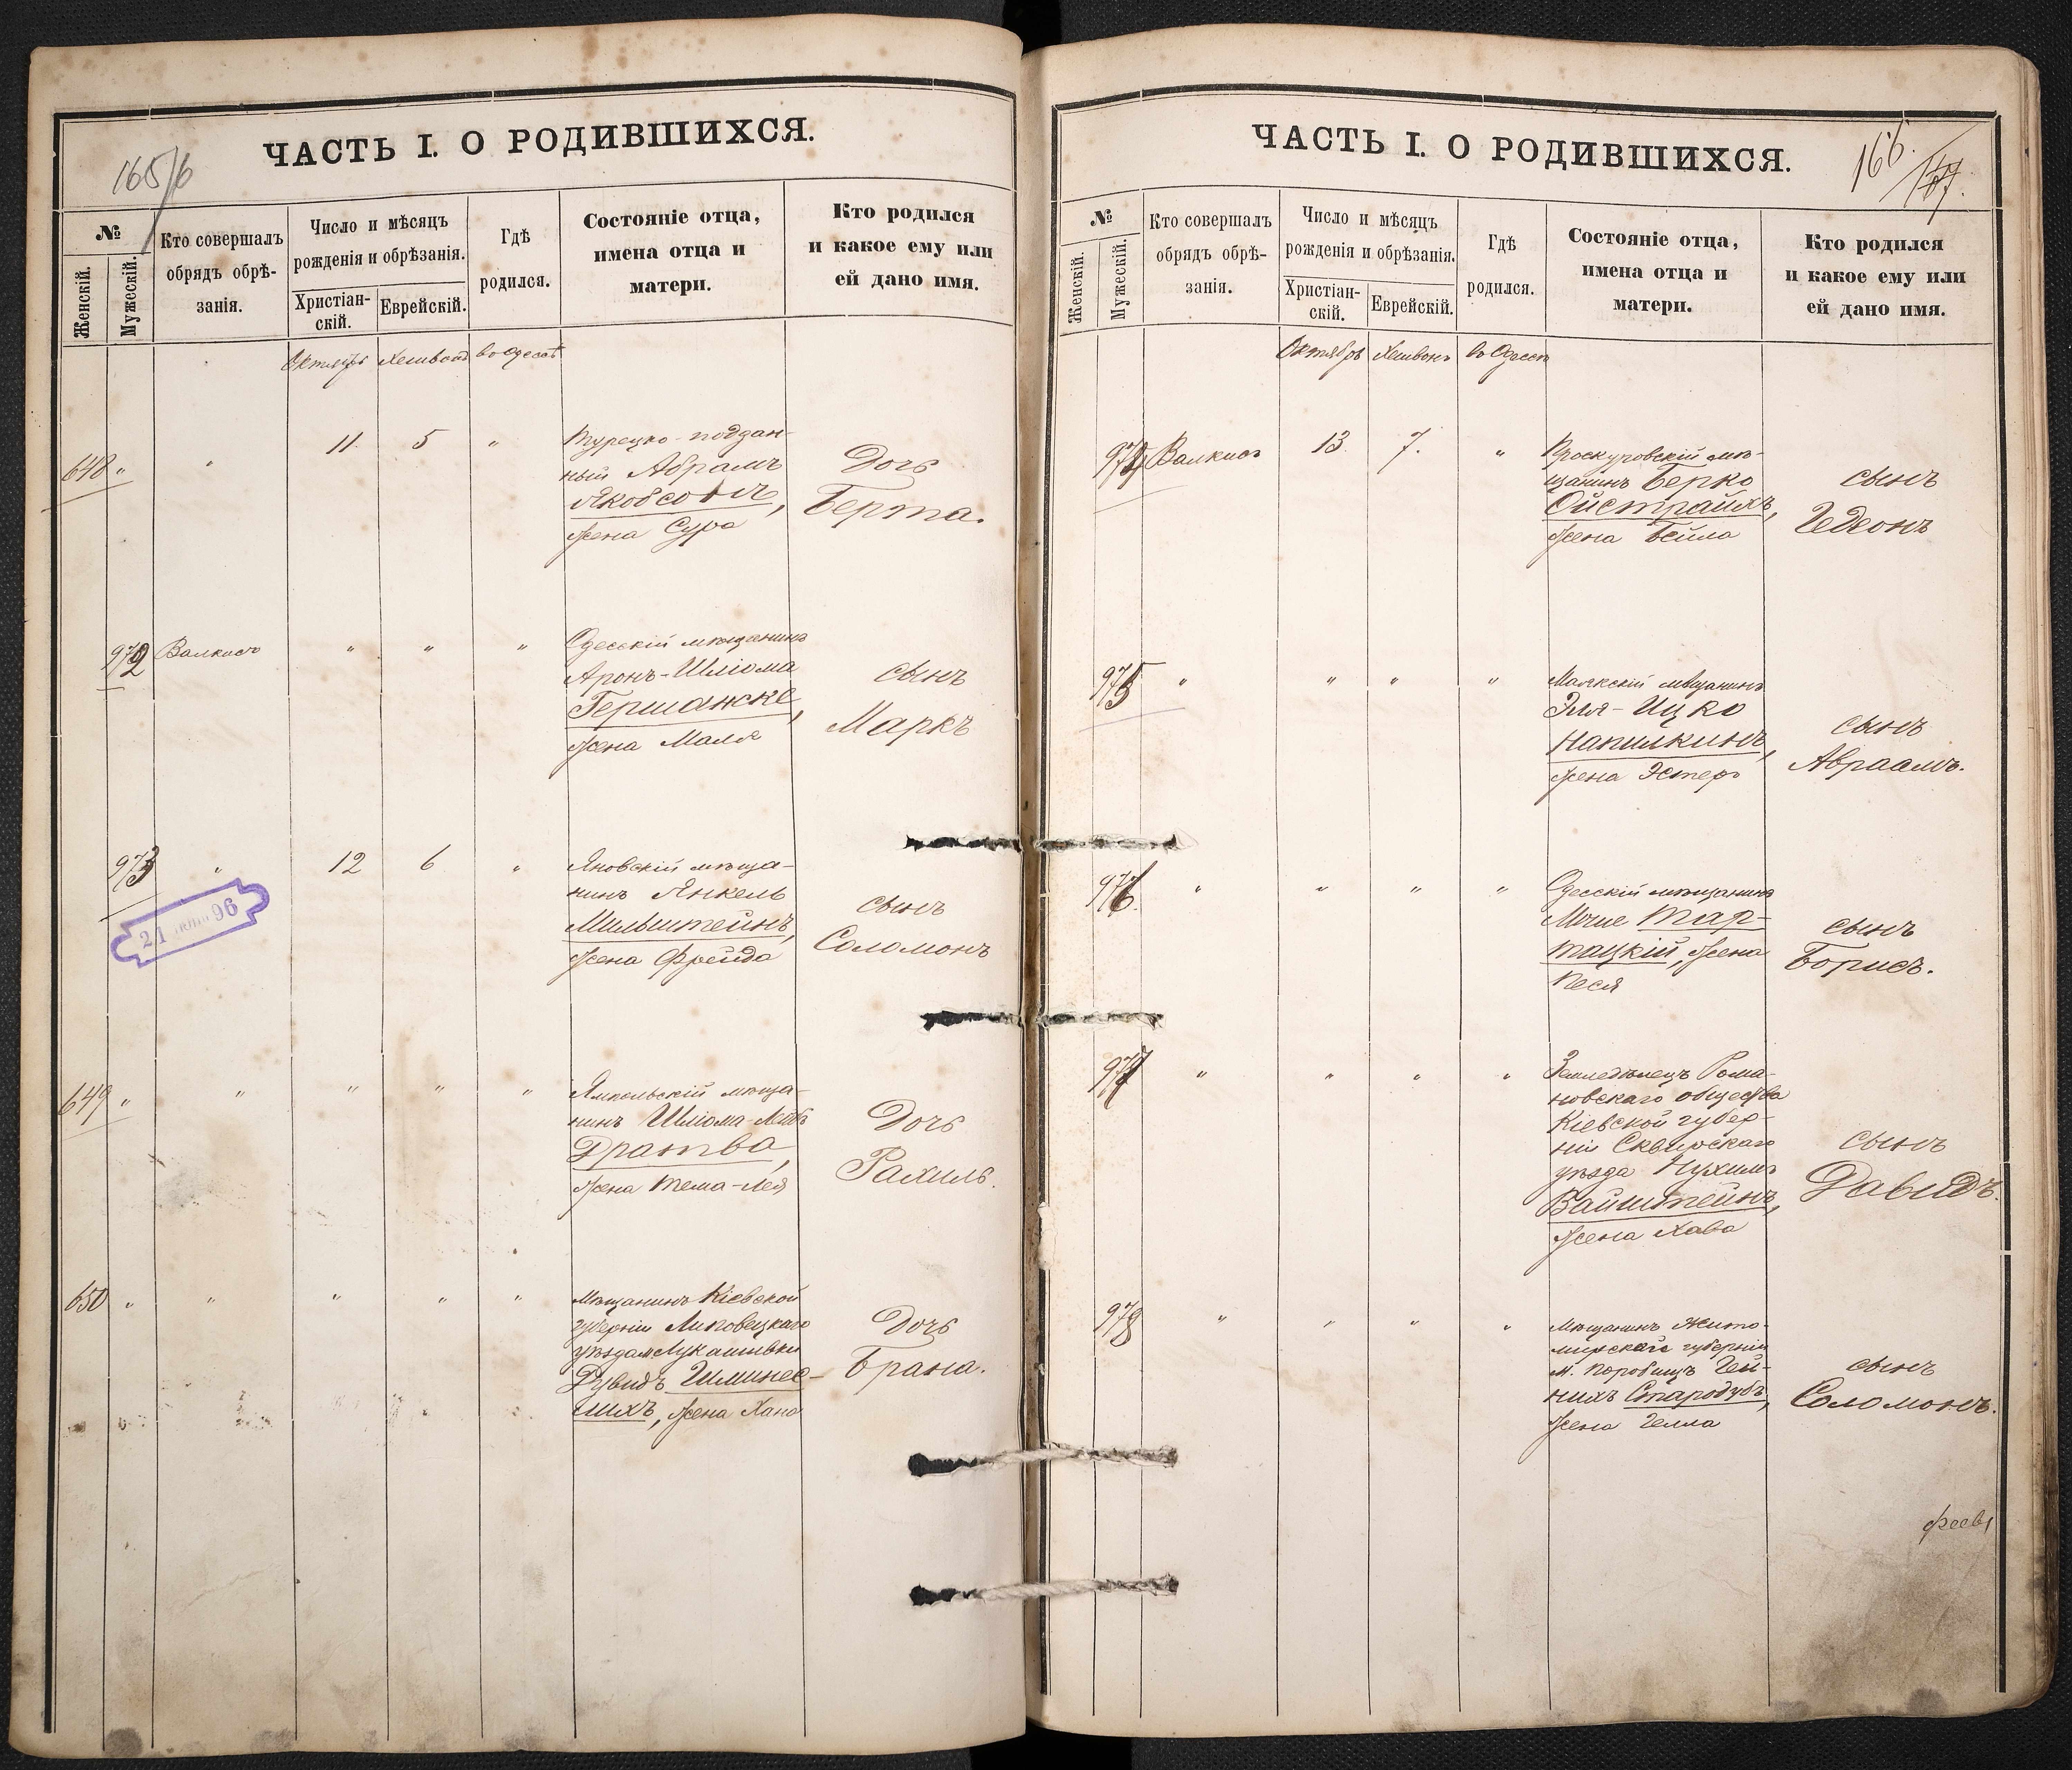 ЧАСТЬ I. О РОДИВШИХСЯ.
165/6
№
Женскій.
Мужескій.
Кто совершалъ
обрядъ обрѣ-
занія.
Число и мѣсяцъ
рожденія и обрѣзанія.
Христіан-
скій.
Еврейскій.
Гдѣ
родился.
Состояніе отца,
имена отца и
матери.
Кто родился
и какое ему или
ей дано имя.
Октябрь Хешванъ въ Одессѣ
648 " " 11 5 "
Турецко-поддан-
ный Абрамъ
Якобсонъ,
жена Сура
Дочь
Берта.
972 Валкисъ " " "
Одесскій мѣщанинъ
Аронъ-Шліома
Гершанске,
жена Маля
сынъ
Маркъ
973 " 12 6 "
Яновскій мѣща-
нинъ Янкель
Мильштейнъ,
жена Фрейда
сынъ
Соломонъ
21 96
649 " " " " "
Ямпольскій мѣща-
нинъ Шліома-Лейб
Дратва,
жена Тема-Лея
Дочь
Рахиль.
650 " " " " "
Мѣщанинъ Кіевской
губерніи Липовецкаго
уѣзда м. Лукашовки
Дувидъ
жена Хана
Дочь
Брана.
ЧАСТЬ I. О РОДИВШИХСЯ.
166.
167.
№
Женскій.
Мужескій.
Кто совершалъ
обрядъ обрѣ-
занія.
Число и мѣсяцъ
рожденія и обрѣзанія.
Христіан-
скій.
Еврейскій.
Гдѣ
родился.
Состояніе отца,
имена отца и
матери.
Кто родился
и какое ему или
ей дано имя.
Октябрь Хешванъ въ Одессѣ
974 Валкисъ 13. 7. "
Проскуровскій мѣ-
щанинъ Берко
Ойстрайхъ,
жена Бейла
сынъ
Гедеонъ
975 " " " "
Маякскій мѣщанинъ
Эля-Ицко
Напилкинъ,
жена Эстеръ
сынъ
Авраамъ.
976. " " " "
Одесскій мѣщанинъ
Моше Тар-
тацкій, жена
Песя
сынъ
Борисъ.
977 " " " "
Земледѣлецъ Рома-
новскаго общества
Кіевской губер-
ніи Сквирскаго
уѣзда Нухимъ
Вайнштейнъ,
жена Хава
сынъ
Давидъ.
978 " " " "
Мѣщанинъ Жито-
мирской губерніи
м.
Стародубъ,
жена Гелла
сынъ
Соломонъ.